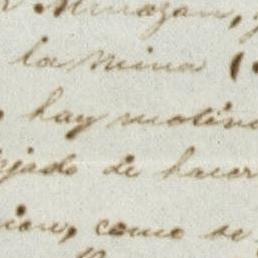 la mina (
hay motivo
jado de hacer
cion, como se